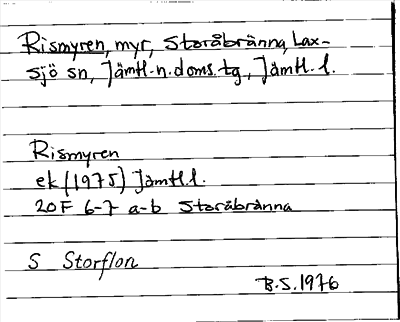 Rismyren, myr, Storåbränna, Lax-
sjö sn, Jämtl. n. doms. tg., Jämtl. l.
Rismyren
ek (1975) Jämtl. l.
20F 6-7 a-b Storåbränna
S Storflon
B.S. 1976